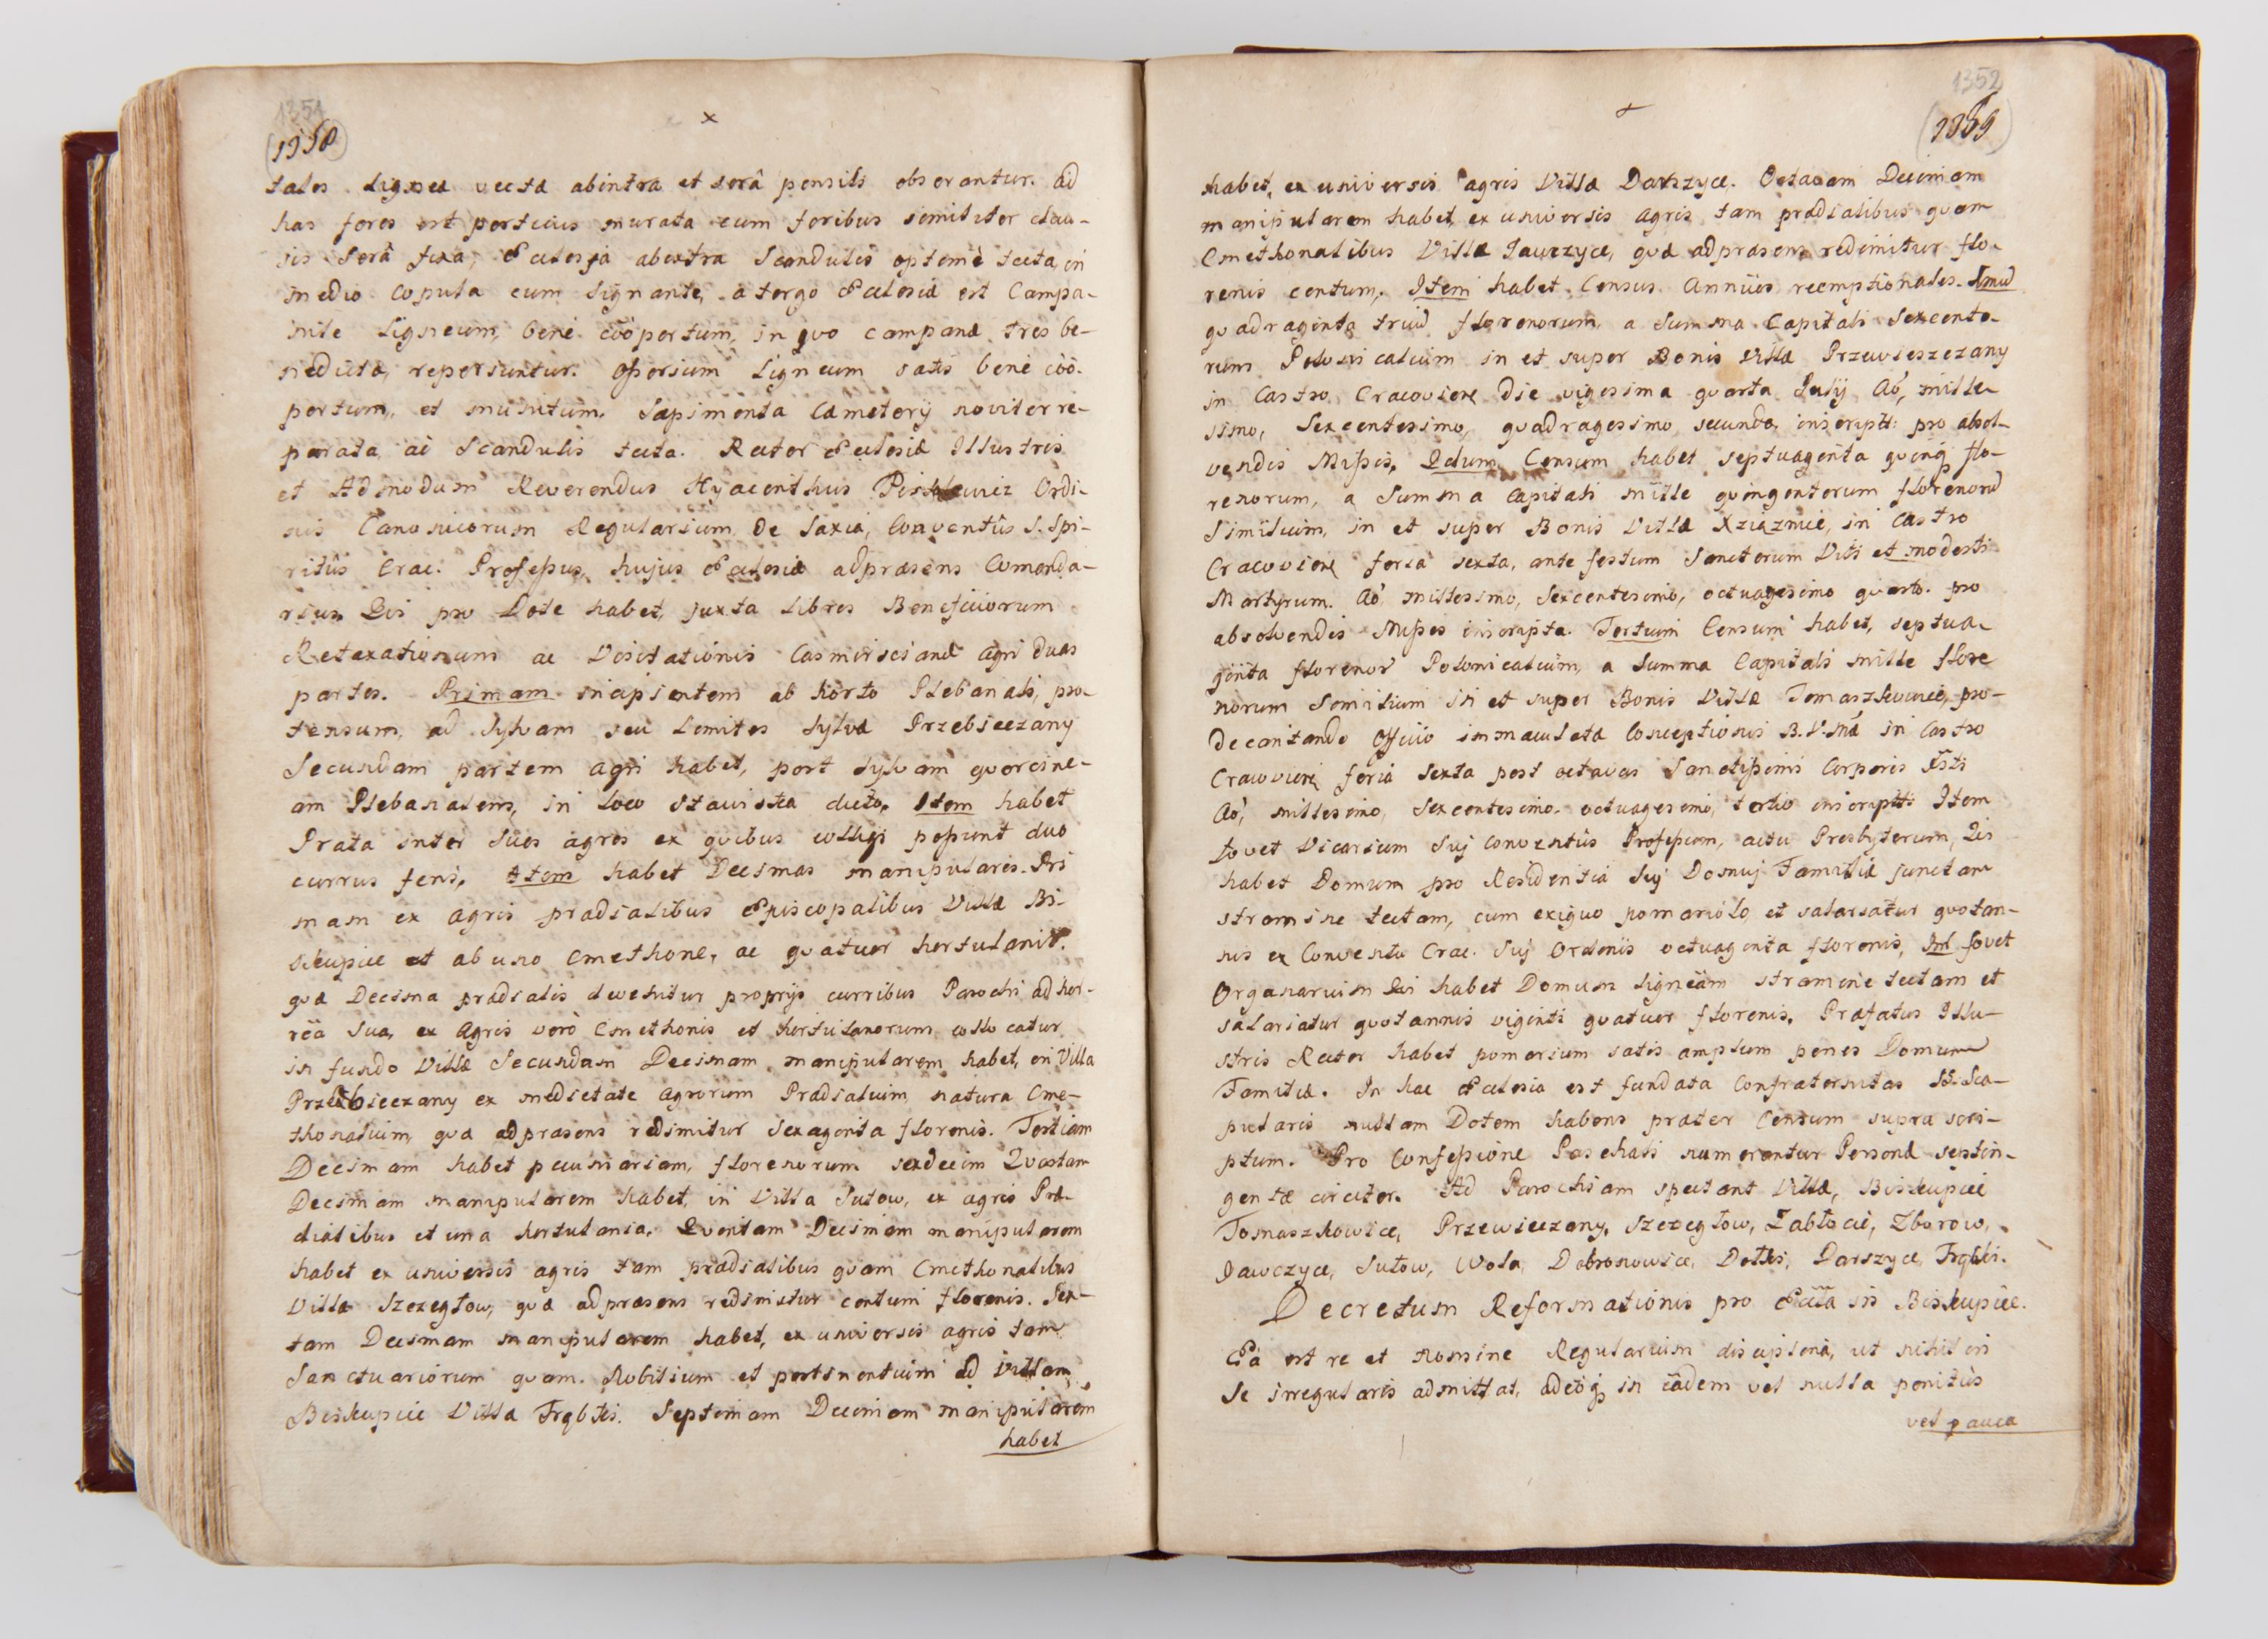 1351
(1358)
x
tales Lignea vecta abintra et serâ pensili obserantur. Ad
has fores est porticus murata cum foribus similiter clau-
sis Serâ fixa, Ecclesia abextra Scandulis optimè tecta, in
medio Copula cum Signante, a tergo Ecclesiæ est Campa-
nile Ligneum, benè coopertum, in quo campanæ tres be-
nedictæ reperiuntur. Ossorium Ligneum satis benè coo-
pertum, et munitum. Sæpimenta Cæmeterij noviter re-
parata, ac Scandulis tecta. Rector Ecclesiæ Illustris
et Admodum Reverendus Hyacinthus Ordi-
nis Canonicorum Regularium De Saxia, Conventûs S. Spi-
ritûs Crac: Professus, hujus Ecclesiæ adpræsens Comenda-
rius. Qis pro Dote habet, juxta Libros Beneficiorum
Retaxationum ac Visitationis Casmirscianæ Agri duas
partes. Primam incipientem ab horto Plebanali, pro-
tensum, ad Sylvam seu Limites Sylvæ Przebieczany
Secundam partem agri habet, post Sylvam quercine-
am Plebanalem, in loco Stawiska dicto. Item habet
Prata inter Suos agros ex quibus colligi possunt duo
currus feni, Item habet Decimas manipulares. Pri
mam ex agris prædialibus Episcopalibus Villæ Bi-
skupice et ab uno Cmethone, ac quatuor hortulanis.
quæ Decima prædialis devehitur proprijs curribus Parochi ad hor-
rea Sua, ex Agris verò Cmethonis et hortulanorum collocatur
in fundo Villæ Secundam Decimam manipularem habet, in Villa
Przebieczany ex medietate Agrorum Prædialium, natura Cme-
thonalium, quæ adpræsens redimitur Sexaginta florenis. Tertiam
Decimam habet pecuniariam, florenorum sexdecim Quartam
Decimam manipularem habet, in Villa Sutow, ex agris Præ-
dialibus et una hortulania. Quintam Decimam manipularem
habet ex universis agris tam prædialibus quam Cmethonalibus
Villæ Szczegłow, quæ adpræsens redimitur centum florenis. Sex-
tam Decimam manipularem habet, ex universis agris tam
Sanctuariorum quam Nobilium et pertinentium ad Villam
Biskupice Villa Trąbki. Septimam Decimam manipularem
habet
1352
(1359)
habet, ex universis agris Villæ Darszyce. Octavam Decimam
manipularem habet, ex universis Agris tam prædialibus quam
Cmethonalibus Villæ Jawczyce, quæ adpræsens redimitur flo-
renis centum. Item habet Census Annuos reemptionales. Imũ
quadraginta trium florenorum, a Summa Capitali Sexcento-
rum Polonicalium in et super Bonis Villæ Przewieszczany
in Castro Cracovien die vigesima quarta Julij Aô, mille-
simo, Sexcentesimo, quadragesimo secundo inscriptt: pro absol-
vendis Missis, 2dum Censum habet septuaginta quinq flo-
renorum, a Summa Capitali mille quingentorum florenorũ
Similium, in et super Bonis Villæ Xziąznice, in Castro
Cracovien feria sexta, ante festum Sanctorum Viti et modesti
Martyrum. Aô, millesimo, Sexcentesimo, octuagesimo quarto. pro
absolvendis Misses inscripta. Tertium Censum habet, septua-
ginta florenor Polonicalium, a Summa Capitali mille flore
norum Similium in et super Bonis Villæ Tomaszkowice, pro-
decantando Officio immaculatæ Conceptionis B.V.Mæ in Castro
Cracovien feria Sexta post octavas Sanctissimi Corporis Xsti
Aô, millesimo, Sexcentesimo. octuagesimo, tertio inscriptt: Item
fovet Vicarium Sui Conventûs Professum, actu Presbyterum, Qis
habet Domum pro Residentia Sui Domui Familiæ junctam
stramine tectam, cum exiguo pomariolo, et salariatur quotan-
nis ex Conventu Crac. Sui Ordinis octuaginta florenis, Itd fovet
Organarium Qi habet Domum ligneam stramine tectam et
salariatur quotannis viginti quatuor florenis. Præfatus Illu-
stris Rector habet pomarium satis amplum penes Domum
Familiæ. In hac Ecclesia est fundata Confraternitas SS. Sca-
pularis nullam Dotem habens præter Censum supra scri-
ptum. Pro Confessione Paschali numerantur Personæ septin-
gentæ circiter. Ad Parochiam spectant Villæ, Biskupice
Tomaszkowice, Przewieczany, Szczegłow, Zabłocie, Zborow,
Jawczyce, Sutow, Wola, Dobronowice, Dołki, Darszyce, Trąbki.
Decretum Reformationis pro Eccła in Biskupice.
Ea est re et Nomine Regularium disciplina, ut nihil in
Se irregularis admittat, adeòq in eadem vel nulla penitùs
vel pauca